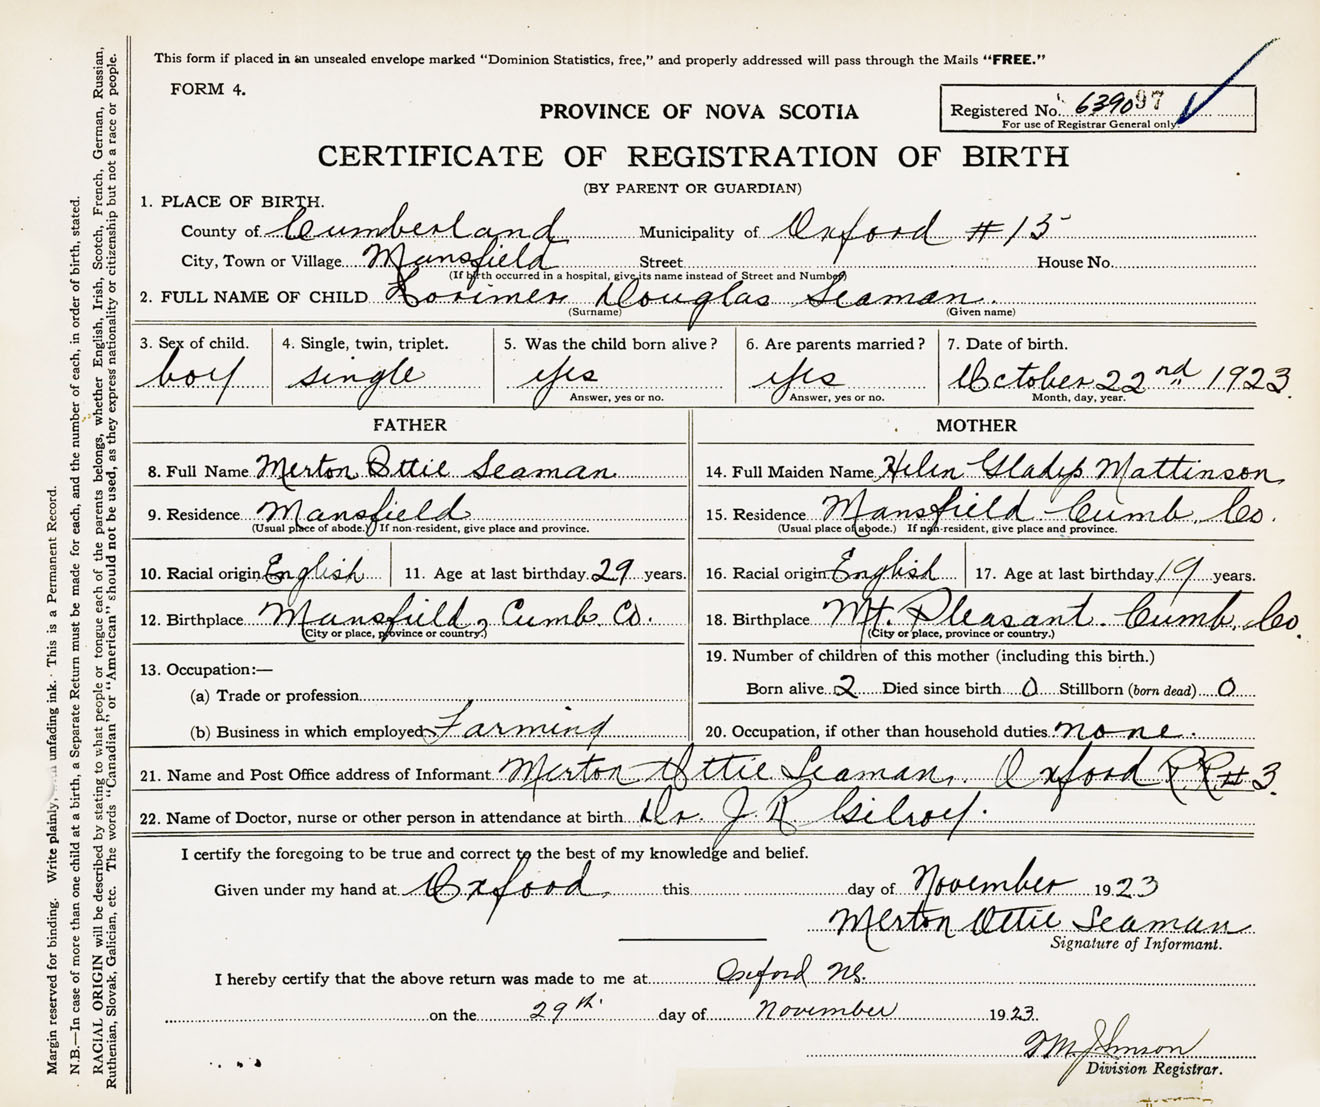 This form if placed in an unsealed envelope marked "Dominion Statistics, free," and properly addressed will pass through the Mails "FREE."
FORM 4.
Registered No. 639097
For use of Registrar General only.
PROVINCE OF NOVA SCOTIA
CERTIFICATE OF REGISTRATION OF BIRTH
(BY PARENT OR GUARDIAN)
1. PLACE OF BIRTH.
County of Cumberland Municipality of Oxford #15
City, Town or Village Mansfield Street House No.
(If birth occurred in a hospital, give its name instead of Street and Number)
2. FULL NAME OF CHILD Lorimer Douglas Seaman.
(Surname) (Given name)
3. Sex of child. 4. Single, twin, triplet. 5. Was the child born alive? 6. Are parents married? 7. Date of birth.
boy single yes yes October 22nd 1923.
Answer, yes or no. Answer, yes or no. Month, day, year.
FATHER MOTHER
8. Full Name Merton Ottie Seaman 14. Full Maiden Name Helen Gladys Mattinson
9. Residence Mansfield 15. Residence Mansfield Cumb. Co.
(Usual place of abode.) If non-resident, give place and province. (Usual place of abode.) If non-resident, give place and province.
10. Racial origin English 11. Age at last birthday 29 years. 16. Racial origin English 17. Age at last birthday 19 years.
12. Birthplace Mansfield, Cumb. Co. 18. Birthplace Mt. Pleasant. Cumb. Co.
(City or place, province or country.) (City or place, province or country.)
13. Occupation:— 19. Number of children of this mother (including this birth.)
(a) Trade or profession Born alive 2 Died since birth 0 Stillborn (born dead) 0
(b) Business in which employed Farming 20. Occupation, if other than household duties none.
21. Name and Post Office address of Informant Merton Ottie Seaman, Oxford R.R.#3.
22. Name of Doctor, nurse or other person in attendance at birth Dr. J. R Gilroy.
I certify the foregoing to be true and correct to the best of my knowledge and belief.
Given under my hand at Oxford, this day of November 1923
Merton Ottie Seaman
Signature of Informant.
I hereby certify that the above return was made to me at Oxford NS.
on the 29th day of November 1923.
Johnson
Division Registrar.
Margin reserved for binding. Write plainly, unfading ink. This is a Permanent Record.
N.B.—In case of more than one child at a birth, a Separate Return must be made for each, and the number of each, in order of birth, stated.
RACIAL ORIGIN will be described by stating to what people or tongue each of the parents belongs, whether English, Irish, Scotch, French, German, Russian,
Ruthenian, Slovak, Galician, etc. The words "Canadian" or "American" should not be used, as they express nationality or citizenship but not a race or people.